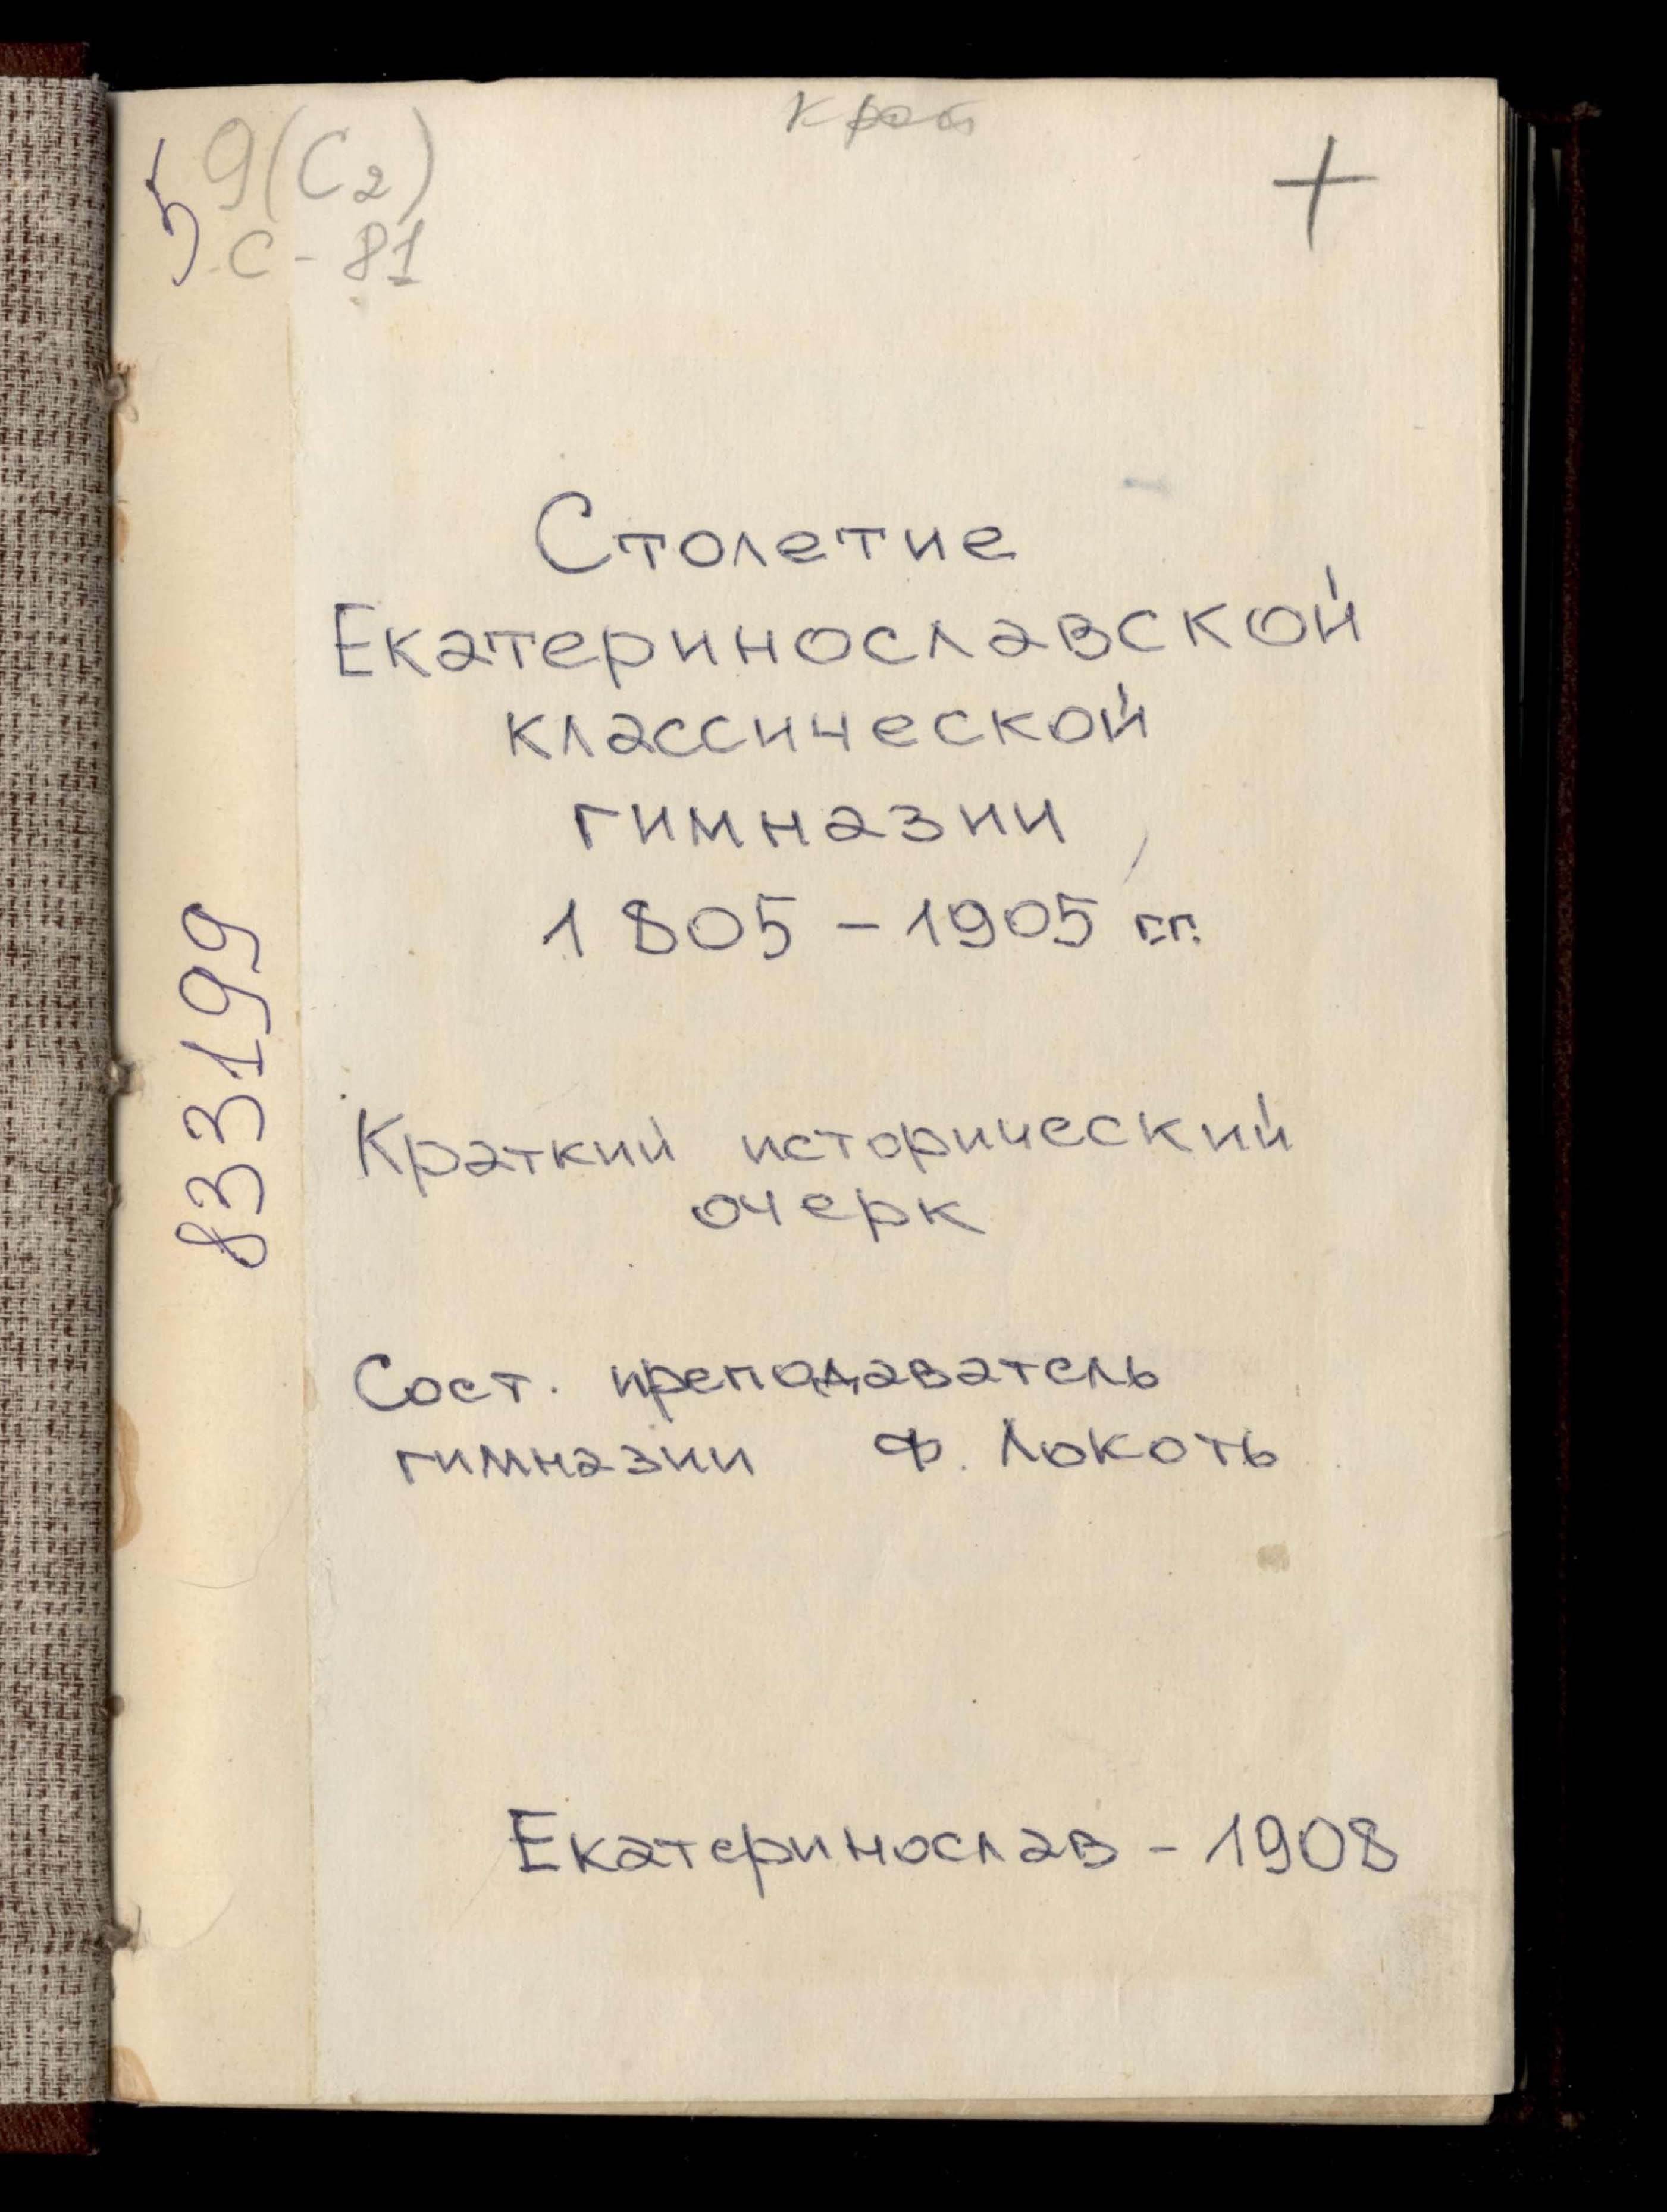 5 9(С2)
С-81
+
Столетие
Екатеринославской
классической
гимназии
1805-1905 гг.
833199
Краткий исторический
очерк
Сост. преподаватель
гимназии Ф. Локоть
Екатеринослав - 1908